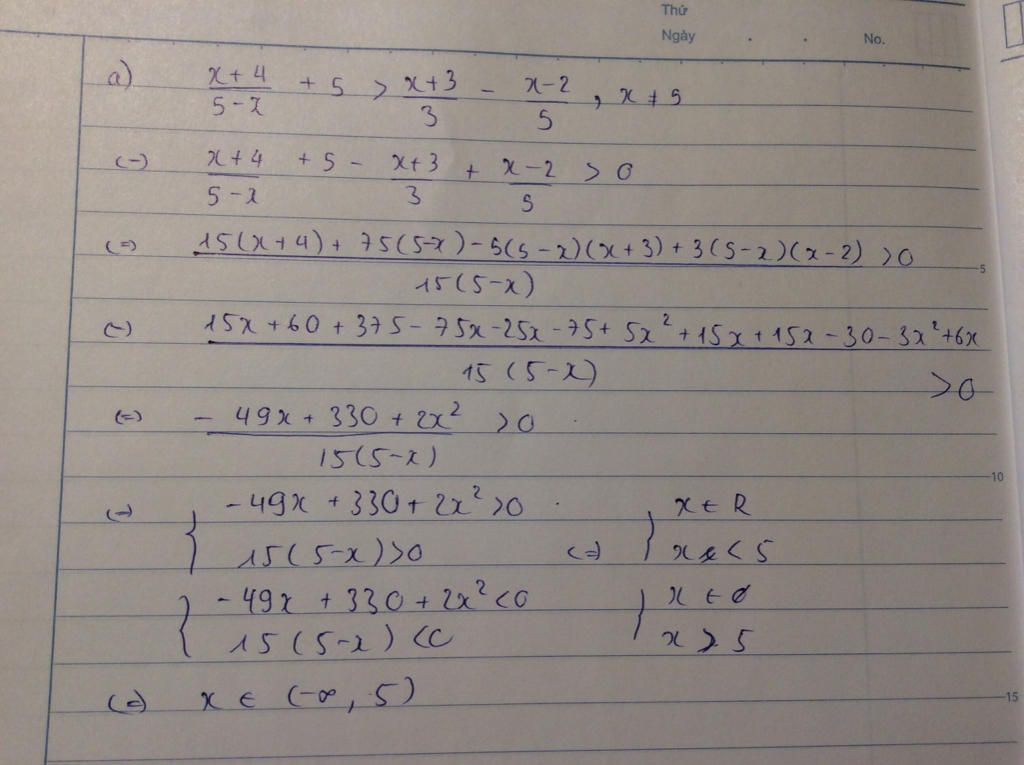 Thứ
Ngày . . No.
a) \frac{x+4}{5-x} + 5 > \frac{x+3}{3} - \frac{x-2}{5} , x ≠ 5
(=) \frac{x+4}{5-x} + 5 - \frac{x+3}{3} + \frac{x-2}{5} > 0
(=) \frac{15(x+4) + 75(5-x) - 5(5-x)(x+3) + 3(5-x)(x-2)}{15(5-x)} > 0
5
(=) \frac{15x + 60 + 375 - 75x - 25x - 75 + 5x^2 + 15x + 15x - 30 - 3x^2 + 6x}{15(5-x)} > 0
(=) \frac{-49x + 330 + 2x^2}{15(5-x)} > 0
10
(=) { -49x + 330 + 2x^2 > 0 } x ∈ R
15(5-x) > 0 (=) x < 5
{ -49x + 330 + 2x^2 < 0 } x ∈ ∅
15(5-x) < 0 x > 5
(=) x ∈ (-∞, 5)
15